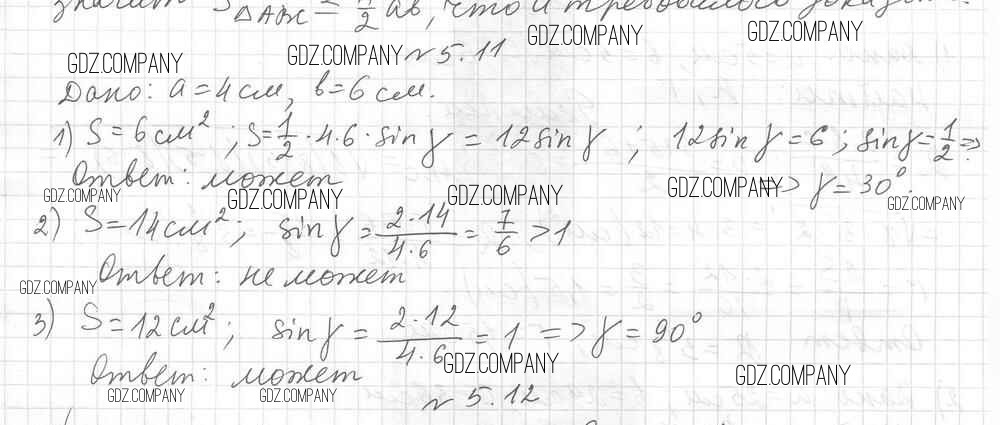 значит S△ABC = 1/2 ab, что и требовалось
GDZ.COMPANY GDZ.COMPANY
GDZ.COMPANY GDZ.COMPANY № 5.11
Дано: a = 4 см, b = 6 см.
1) S = 6 см²; S = 1/2 · 4 · 6 · sin γ = 12 sin γ; 12 sin γ = 6; sin γ = 1/2 =>
Ответ: может => γ = 30°.
GDZ.COMPANY GDZ.COMPANY GDZ.COMPANY GDZ.COMPANY GDZ.COMPANY
2) S = 14 см²; sin γ = 2·14/4·6 = 7/6 > 1
Ответ: не может
GDZ.COMPANY
3) S = 12 см²; sin γ = 2·12/4·6 = 1 => γ = 90°
GDZ.COMPANY GDZ.COMPANY
Ответ: может
GDZ.COMPANY GDZ.COMPANY
№ 5.12